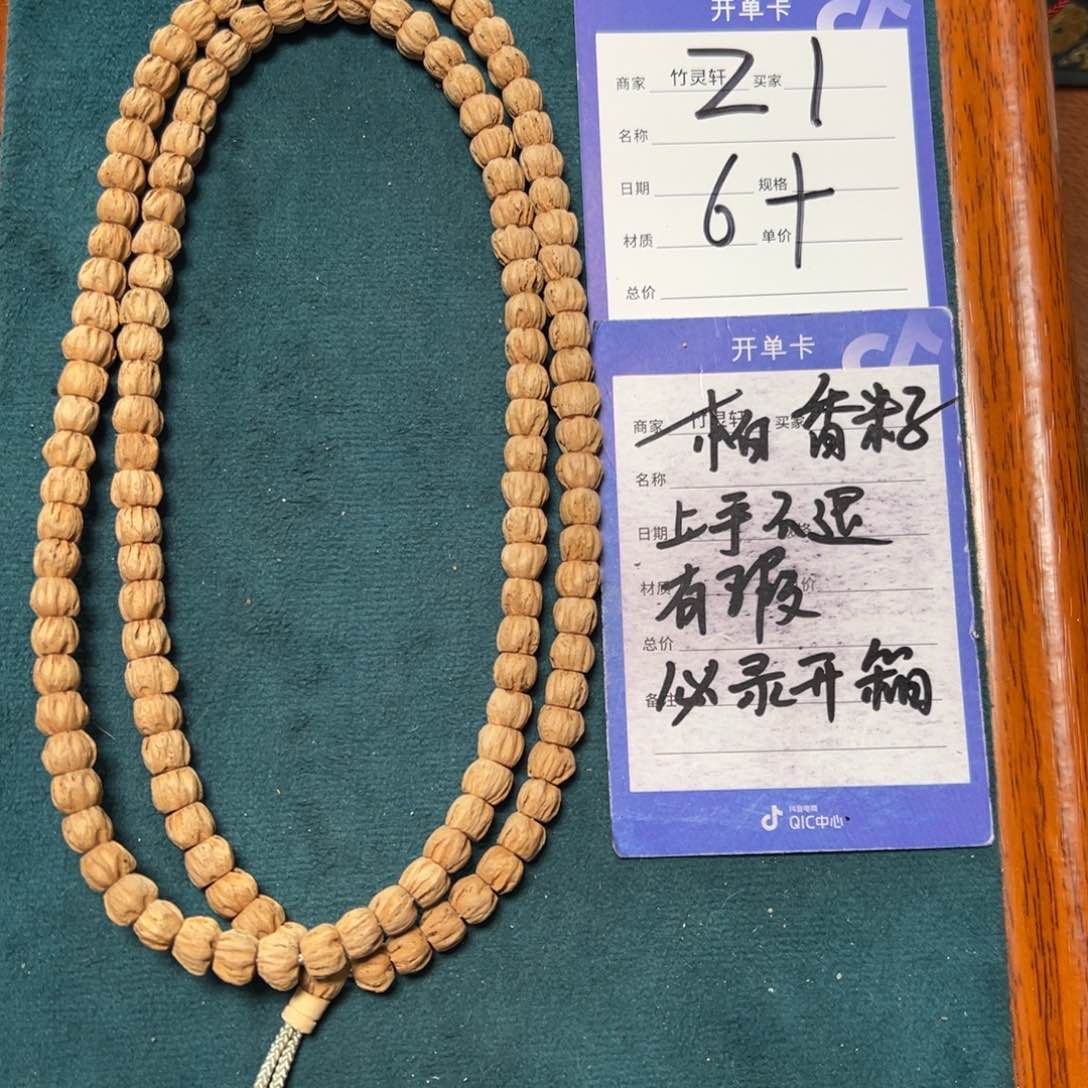 开单卡
商家 竹灵轩 买家
21
名称
日期 规格
6十
材质 单价
总价
开单卡
商家 竹灵轩 买家
柏香籽
名称
上手不退
日期
材质
有瑕
总价
必录开箱
备注
抖音电商
QIC中心